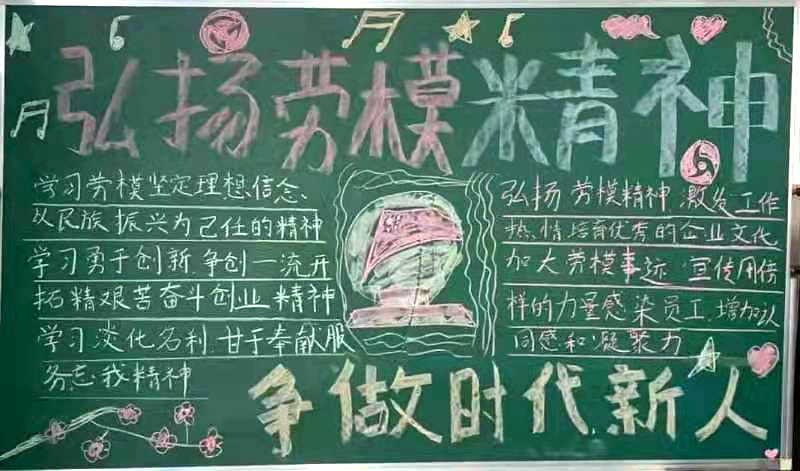 弘扬劳模精神
学习劳模坚定理想信念、
以民族振兴为己任的精神
学习勇于创新,争创一流开
拓精艰苦奋斗创业精神
学习淡化名利,甘于奉献服
务忘我精神
弘扬劳模精神 激发工作
热情培育优秀的企业文化
加大劳模事迹 宣传用榜
样的力量感染员工,增加认
同感和凝聚力
争做时代新人